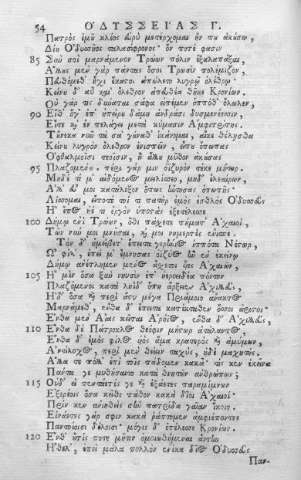 54 ΟΔΥΣΣΕΙΑΣ Γ.
Πατρὸς ἐμῦ κλέος εὐρὺ μετέρχομαι ἤν πε ἀκέσω,
Δίυ Ὀδυσσῆος ταλασίφρονος· ὅν ποτέ φασιν
85 Σὺν σοὶ μαρνάμενον Τρώων πόλιν ἐξαλαπάξαι,
Ἄλλες μὲν γὰρ πάντας ὅσοι Τρωσὶν πολέμιζον,
Πευθόμεθ' ἧχι ἕκαςος ἀπώλετο λυγρῷ ὀλέθρῳ·
Κείνε δ' αὖ καὶ ὄλεθρον ἀπευθέα θῆκε Κρονίων.
Οὐ γάρ τις δύναται σάφα εἰπέμεν ὁππόθ' ὄλωλεν,
90 Εἴθ' ὅγ' ἐπ' ἠπείρε δάμη ἀνδράσι δυσμενέεσσιν,
Εἴτε καὶ ἐν πελάγει μετὰ κύμασιν Ἀμφιτρίτης.
Τένεκα νῦν τὰ σὰ γέναθ' ἱκάνομαι, αἴκ' ἐθέλῃσθα
Κείνε λυγρὸν ὄλεθρον ἐνισπεῖν, εἴπε ὄπωπας
Ὀφθαλμοῖσι τεοῖσιν, ἢ ἄλλε μῦθον ἄκεσας
95 Πλαζομένε· πέρι γάρ μιν ὀϊζυρὸν τέκε μήτηρ.
Μηδέ τί μ' αἰδόμενος μειλίσσεο, μηδ' ἐλεαίρων,
Ἀλλ' εὖ μοι κατάλεξον ὅπως ἤντησας ὀπωπῆς·
Λίσσομαι, εἴποτέ τοί τι πατὴρ ἐμὸς ἐσθλὸς Ὀδυσσεὺς
Ἢ ἔπος ἠέ τι ἔργον ὑποςὰς ἐξετέλεσσε
100 Δήμῳ ἔνι Τρώων, ὅθι πάσχετε πήματ' Ἀχαιοί,
Τῶν νῦν μοι μνῆσαι, καί μοι νημερτὲς ἐνίσπε.
Τὸν δ' ἠμείβετ' ἔπειτα γερήνιος ἱππότα Νέςωρ,
Ὦ φίλ', ἐπεί μ' ἔμνησας ὀϊζύος ἣν ἐν ἐκείνῳ
Δήμῳ ἀνέτλημεν μένος ἄσχετοι υἷες Ἀχαιῶν,
105 Ἠ μὲν ὅσα ξὺν νηυσὶν ἐπ' ἠεροειδέα πόντον
Πλαζόμενοι κατὰ ληΐδ' ὅπη ἄρξειεν Ἀχιλλεὺς,
Ἠδ' ὅσα καὶ περὶ ἄςυ μέγα Πριάμοιο ἄνακτος
Μαρνάμεθ', ἔνθα δ' ἔπειτα κατέκταθεν ὅσσοι ἄριςοι·
Ἔνθα μὲν Αἴας κεῖται Ἀρήϊος, ἔνθα δ' Ἀχιλλεὺς,
110 Ἔνθα δὲ Πάτροκλος θεόφιν μήςωρ ἀτάλαντος,
Ἔνθα δ' ἐμὸς φίλος υἱὸς ἅμα κρατερὸς καὶ ἀμύμων,
Ἀντίλοχος, πέρι μὲν θείειν ταχὺς, ἠδὲ μαχητής.
Ἄλλα τε πόλλ' ἐπὶ τοῖς πάθομεν κακὰ· τίς κεν ἐκεῖνα
Πάντα γε μυθήσαιτο καταθνητῶν ἀνθρώπων;
115 Οὐδ' εἰ πεντάετές γε καὶ ἑξάετες παραμίμνων
Ἐξερέοις ὅσα κεῖθι πάθον κακὰ δῖοι Ἀχαιοί·
Πρίν κεν ἀνιηθεὶς σὴν πατρίδα γαῖαν ἵκοιο.
Εἰνάετες γάρ σφιν κακὰ ῥάπτομεν ἀμφιέποντες
Παντοίοισι δόλοισι· μόγις δ' ἐτέλεσσε Κρονίων.
120 Ἔνθ' ὔτις ποτὲ μῆτιν ὁμοιωθήμεναι ἄντην
Ἤθελ', ἐπεὶ μάλα πολλὸν ἐνίκα δῖος Ὀδυσσεὺς
Παν-